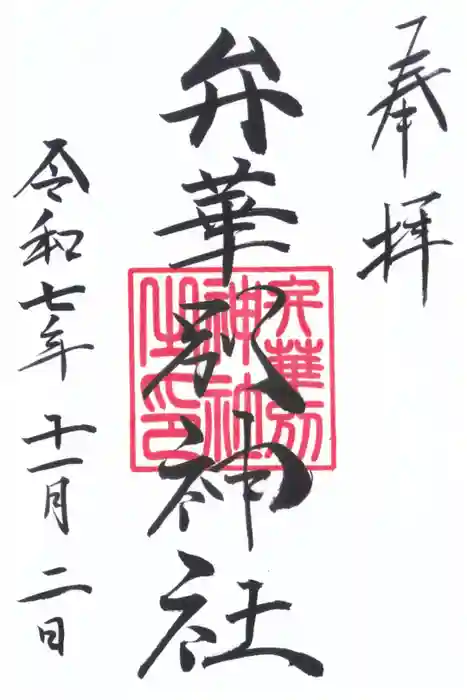 奉拝
弁華別神社
弁華別
神社
之印
令和七年 十一月 二日